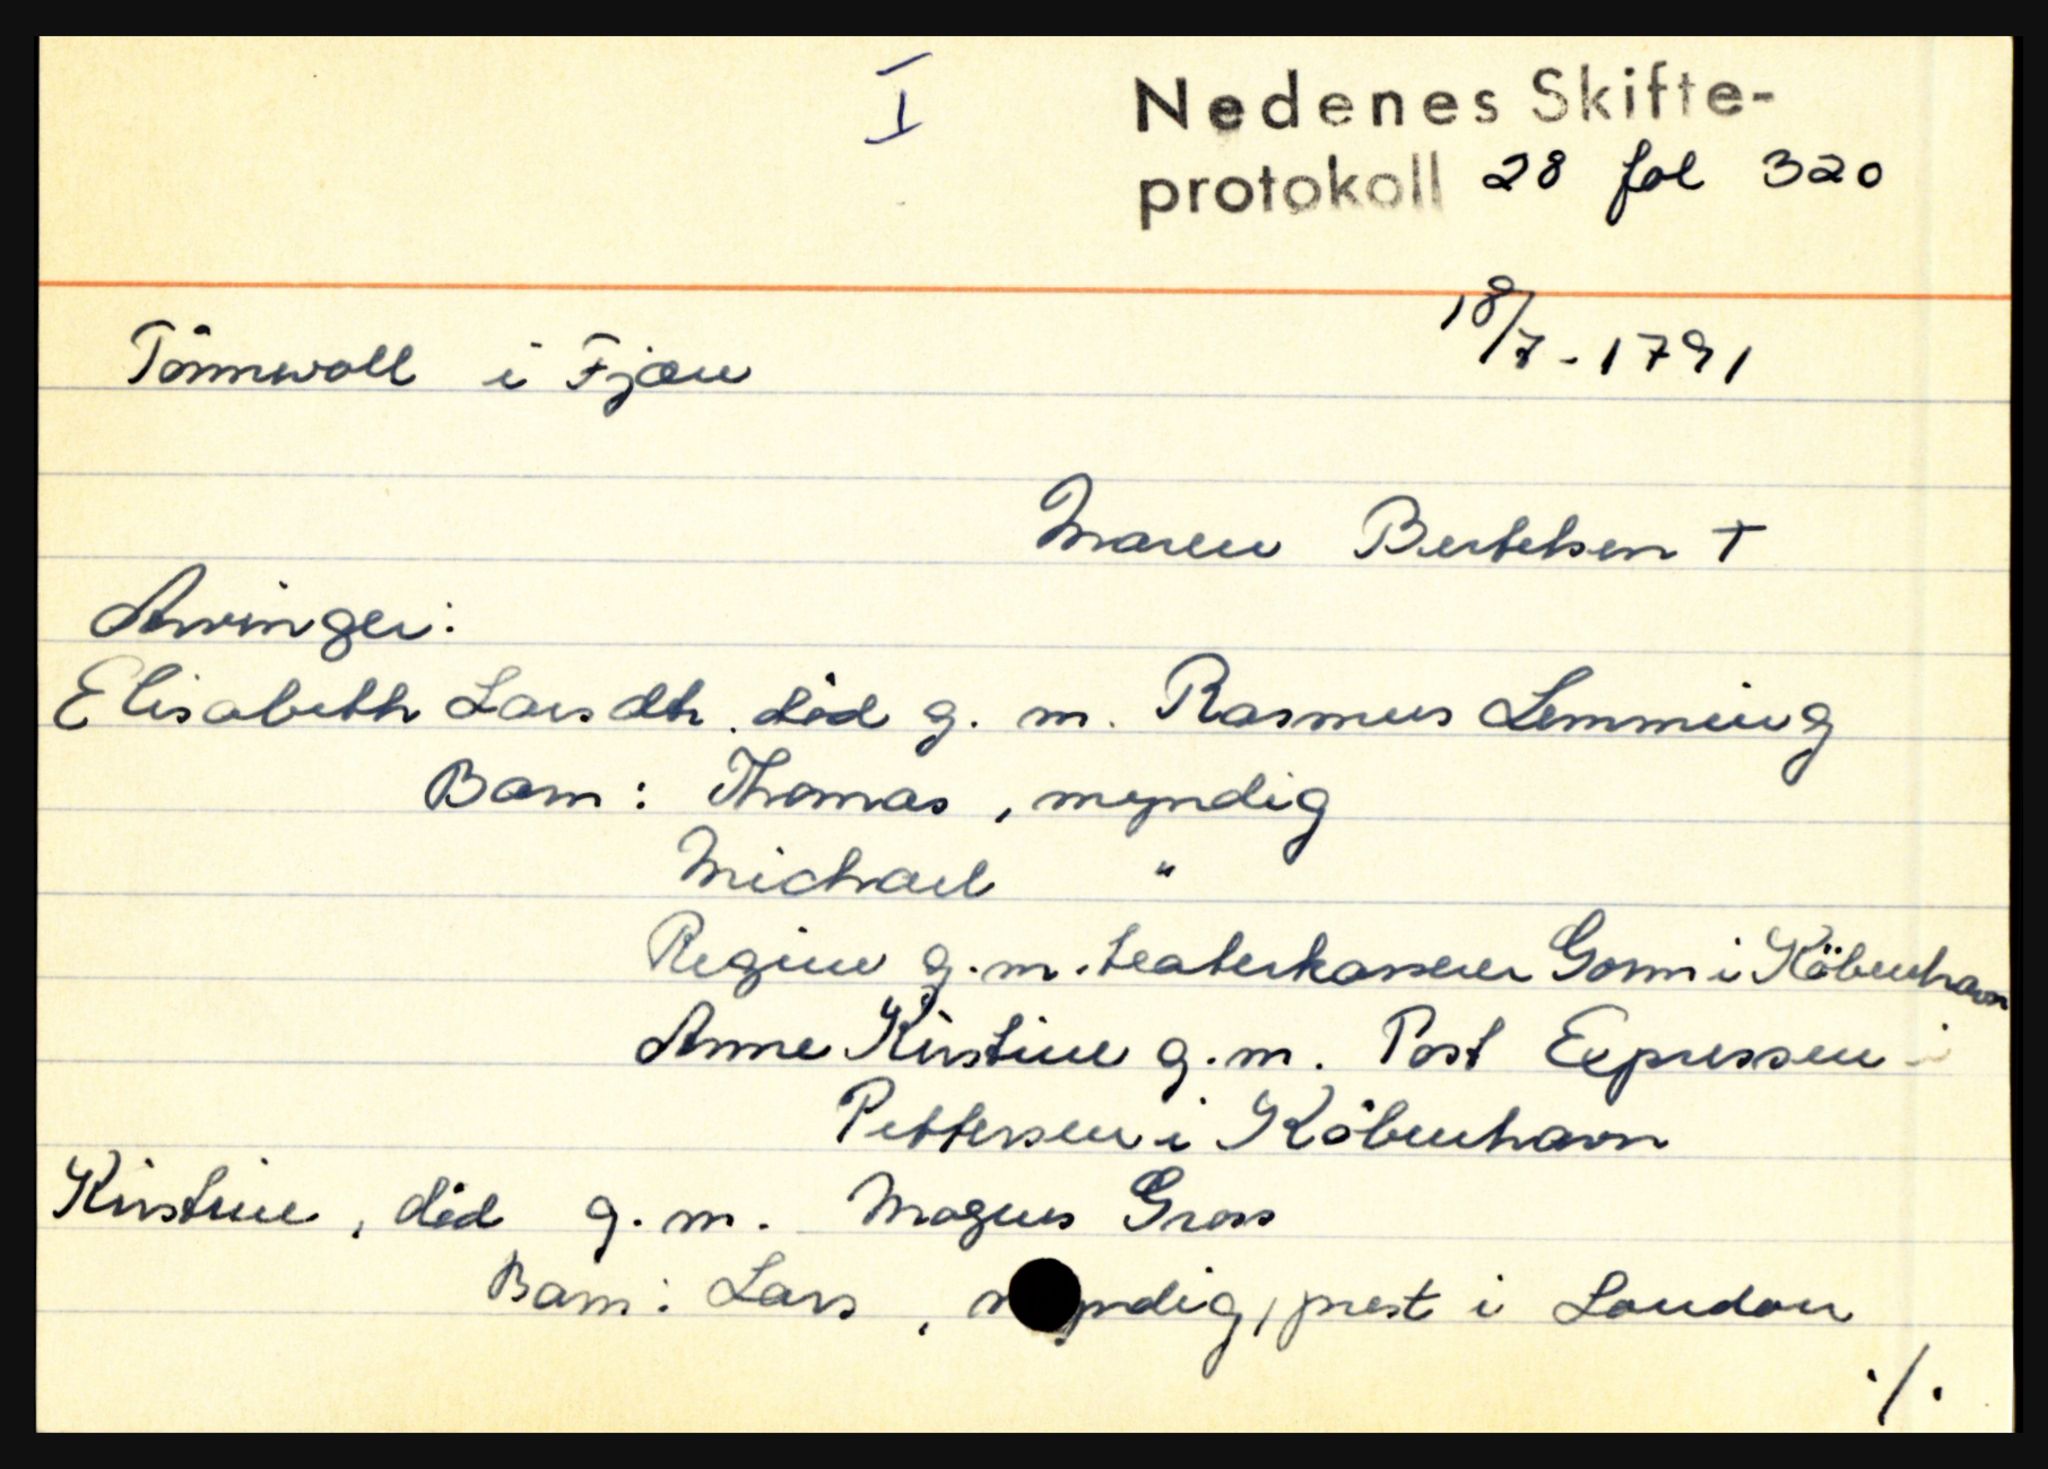 I
Nedenes Skifte-
protokoll 28 fol 320
18/7-1791
Tömwoll i Fjære
Maren Bertelsen †
Arvinger:
Elisabeth Larsdtr. död g. m. Rasmus Lemming
Barn: Thomas, myndig
Michael "
Regine g.m. teaterkasserer Gorm i Köbenhavn
Anne Kirstine g.m. Post Expressen i
Pettersen i Köbenhavn
Kirstine, död g.m. Magnus Gross
Barn: Lars, myndig, prest i London
./.